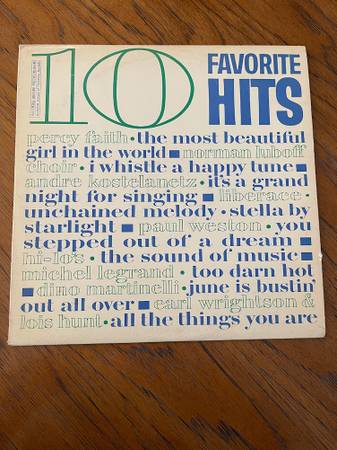 10 FAVORITE
HITS
percy faith • the most beautiful
girl in the world ■ norman luboff
choir • i whistle a happy tune ■
andre kostelanetz • it's a grand
night for singing ■ liberace •
unchained melody • stella by
starlight ■ paul weston • you
stepped out of a dream ■
hi-lo's • the sound of music ■
michel legrand • too darn hot
■ dino martinelli • june is bustin'
out all over ■ earl wrightson &
lois hunt • all the things you are